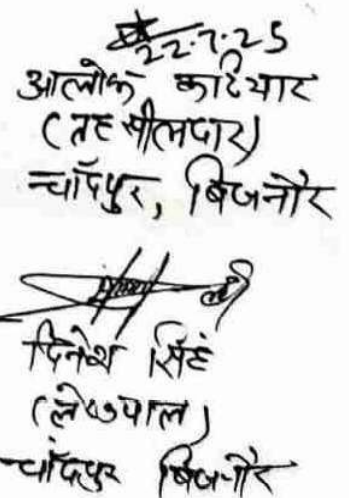 22.7.25
आलोक कटियार
(तहसीलदार)
चाँदपुर, बिजनौर
दिनेश सिंह
(लेखपाल)
चाँदपुर बिजनौर